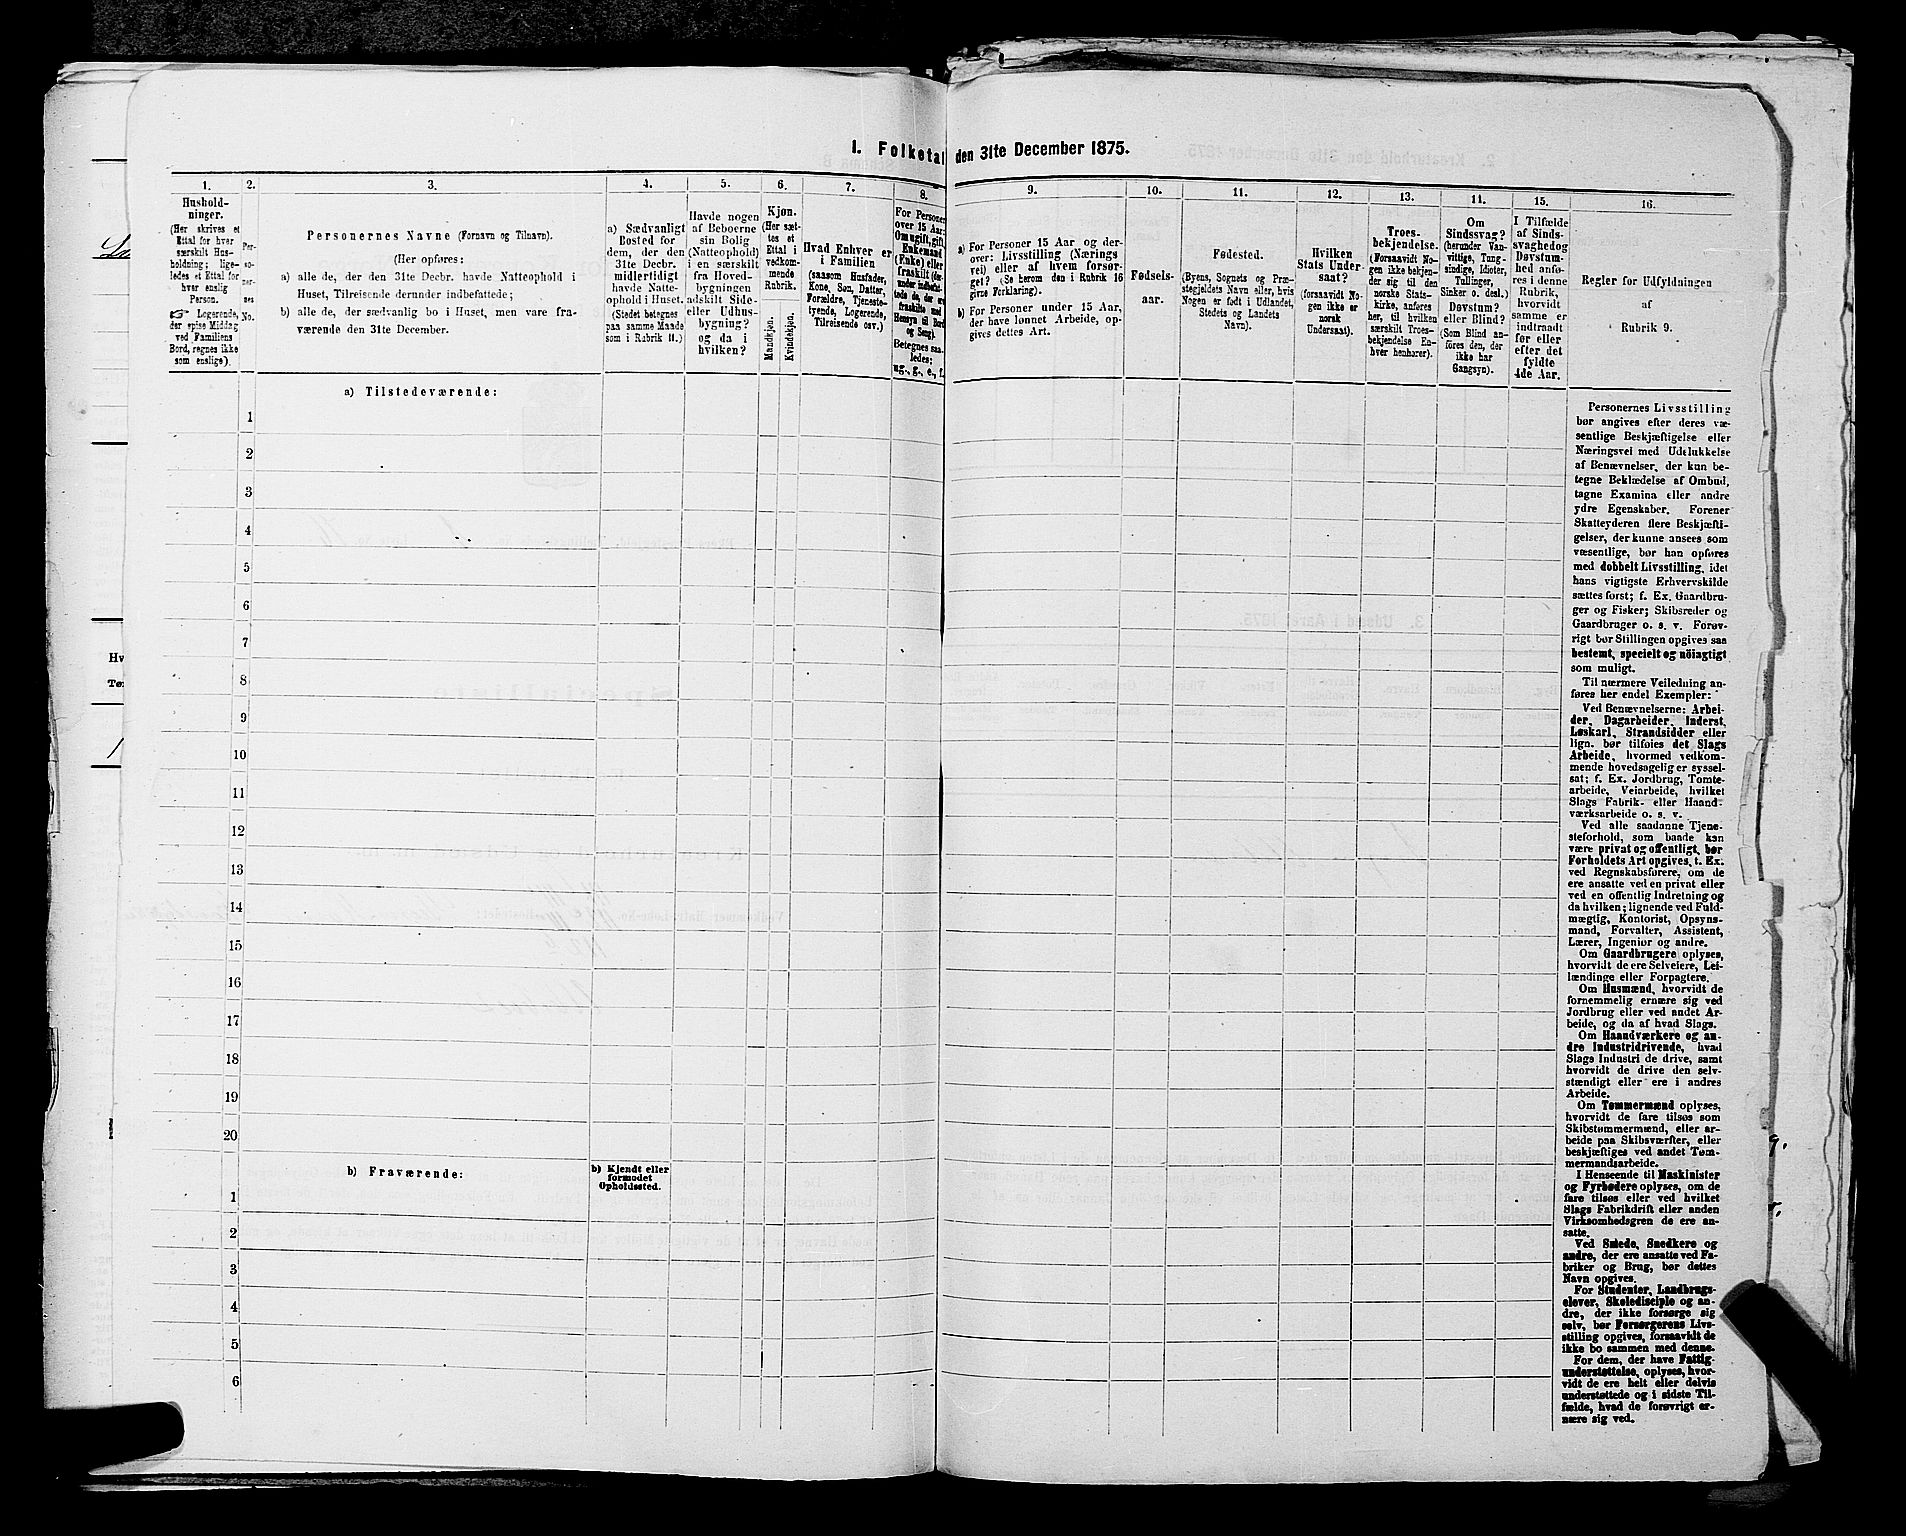 1. Folketal den 31te December 1875.
1.
Hushold-
ninger.
(Her skrives et
Ettal for hver
særskilt Hus-
holdning; lige-
ledes et Ettal for
hver enslig
Person.
☞ Logerende,
der spise Middag
ved Familiens
Bord, regnes ikke
som enslige).
2.
Per-
so-
ner-
nes
No.
3.
Personernes Navne (Fornavn og Tilnavn).
(Her opføres:
a) alle de, der den 31te Decbr. havde Natteophold i
Huset, Tilreisende derunder indbefattede;
b) alle de, der sædvanlig bo i Huset, men vare fra-
værende den 31te December.
4.
a) Sædvanligt
Bosted for
dem, der den
31te Decbr.
midlertidigt
havde Natte-
ophold i Huset.
(Stedet betegnes
paa samme Maade
som i Rubrik 11.)
5.
Havde nogen
af Beboerne
sin Bolig
(Natteophold)
i en særskilt
fra Hoved-
bygningen
adskilt Side-
eller Udhus-
bygning?
og da i
hvilken?
6.
Kjøn.
(Her sæt-
tes et
Ettal i
vedkom-
mende
Rubrik.
Mandkjøn.
Kvindekjøn.
7.
Hvad Enhver er
i Familien
(saasom Husfader,
Kone, Søn, Datter,
Forældre, Tjeneste-
tyende, Logerende,
Tilreisende osv.)
8.
For Personer
over 15 Aar:
Om ugift, gift,
Enkemand
(Enke) eller
fraskilt (der-
under indbefat-
tede de, der ere
fraskilte med
Hensyn til Bord
og Seng).
Betegnes saa-
ledes:
ug., g., e., f.
9.
a) For Personer 15 Aar og der-
over: Livsstilling (Nærings
vei) eller af hvem forsør-
get? (Se herom den i Rubrik 16
givne Forklaring).
b) For Personer under 15 Aar,
der have lønnet Arbeide, op-
gives dettes Art.
10.
Fødsels-
aar.
11.
Fødested.
(Byens, Sognets og Præ-
stegjeldets Navn eller, hvis
Nogen er født i Udlandet,
Stedets og Landets
Navn).
12.
Hvilken
Stats Under-
saat?
(forsaavidt No-
gen ikke er
norsk
Undersaat).
13.
Troes-
bekjendelse.
(Forsaavidt No-
gen ikke bekjen-
der sig til den
norske Stats-
kirke, anføres
her, til hvilken
særskilt Troes-
bekjendelse En-
hver henhører).
11.
Om
Sindssvag?
(herunder Van-
vittige, Tung-
sindige, Idioter,
Tullinger,
Sinker o. desl.)
Døvstum?
eller Blind?
(Som Blind an-
føres den, der
ikke har
Gangsyn).
15.
I Tilfælde
af Sinds-
svaghed og
Døvstum-
hed anfø-
res i denne
Rubrik,
hvorvidt
samme er
indtraadt
før eller
efter det
fyldte
4de Aar.
16.
Regler for Udfyldningen
af
Rubrik 9.
a) Tilstedeværende:
1
2
3
4
5
6
7
8
9
10
11
12
13
14
15
16
17
18
19
20
b) Fraværende:
b) Kjendt eller
formodet
Opholdssted.
1
2
3
4
5
6
Personernes Livsstilling
bør angives efter deres væ-
sentlige Beskjæftigelse eller
Næringsvei med Udelukkelse
af Benævnelser, der kun be-
tegne Beklædelse af Ombud,
tagne Examina eller andre
ydre Egenskaber. Forener
Skatteyderen flere Beskjæfti-
gelser, der kunne ansees som
væsentlige, bør han opføres
med dobbelt Livsstilling, idet
hans vigtigste Erhvervskilde
sættes først; f. Ex. Gaardbru-
ger og Fisker; Skibsreder og
Gaardbruger o. s. v. Forøv-
rigt bør Stillingen opgives saa
bestemt, specielt og nöiagtigt
som muligt.
Til nærmere Veiledning an-
føres her endel Exempler:
Ved Benævnelserne: Arbei-
der, Dagarbeider, Inderst,
Løskarl, Strandsidder eller
lign. bør tilføies det Slags
Arbeide, hvormed vedkom-
mende hovedsagelig er syssel-
sat; f. Ex. Jordbrug, Tomte-
arbeide, Veiarbeide, hvilket
Slags Fabrik- eller Haand-
værksarbeide o. s. v.
Ved alle saadanne Tjene-
steforhold, som baade kan
være privat og offentligt, bør
Forholdets Art opgives, t. Ex.
ved Regnskabsførere, om de
ere ansatte ved en privat eller
ved en offentlig Indretning og
da hvilken; lignende ved Fuld-
mægtig, Kontorist, Opsyns-
mand, Forvalter, Assistent,
Lærer, Ingeniør og andre.
Om Gaardbrugere oplyses,
hvorvidt de ere Selveiere, Lei-
lændinge eller Forpagtere.
Om Husmænd, hvorvidt de
fornemmelig ernære sig ved
Jordbrug eller ved andet Ar-
beide, og da af hvad Slags.
Om Haandværkere og an-
dre Industridrivende, hvad
Slags Industri de drive, samt
hvorvidt de drive den selv-
stændigt eller ere i andres
Arbeide.
Om Tømmermænd oplyses,
hvorvidt de fare tilsøs som
Skibstømmermænd, eller ar-
beide paa Skibsværfter, eller
beskjæftiges ved andet Tøm-
mermandsarbeide.
I Henseende til Maskinister
og Fyrbødere oplyses, om de
fare tilsøs eller ved hvilket
Slags Fabrikdrift eller anden
Virksomhedsgren de ere an-
satte.
Ved Smede, Snedkere og
andre, der ere ansatte ved Fa-
briker og Brug, bør dettes
Navn opgives.
For Studenter, Landbrugs-
elever, Skoledisciple og an-
dre, der ikke forsørge sig
selv, bør Forsørgerens Livs-
stilling opgives, forsaavidt de
ikke bo sammen med denne.
For dem, der have Fattig-
understøttelse, oplyses, hvor-
vidt de ere helt eller delvis
understøttede og i sidste Til-
fælde, hvad de forøvrigt er-
nære sig ved.